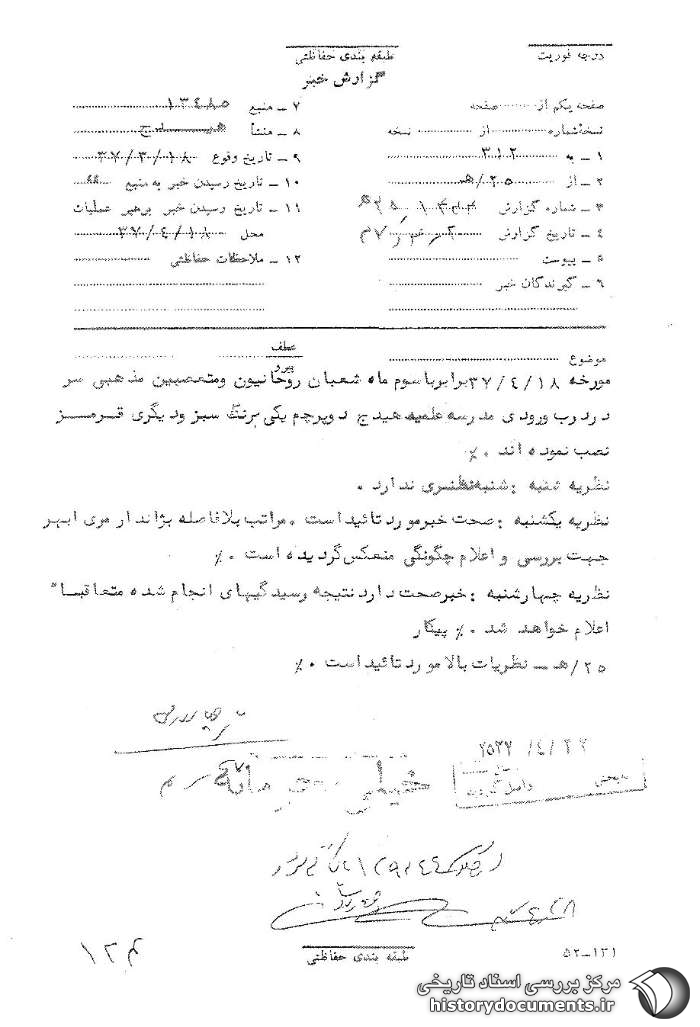 درجه فوریت
طبقه بندی حفاظتی
گزارش خبر
صفحه یکم از صفحه
نسخه شماره از نسخه
۱ ـ به ۳۱۲
۲ ـ از ۲۵/هـ
۳ ـ شماره گزارش
۴ ـ تاریخ گزارش
۵ ـ پیوست
۶ ـ گیرندگان خبر
۷ ـ منبع ۱۳۴۸۵
۸ ـ منشأ
۹ ـ تاریخ وقوع ۳۷/۳/۱۸
۱۰ ـ تاریخ رسیدن خبر به منبع
۱۱ ـ تاریخ رسیدن خبر برهبر عملیات
محل ۳۷/۴/۱۸
۱۲ ـ ملاحظات حفاظتی
موضوع
عطف
پیرو
مورخه ۳۷/۴/۱۸ برابر با سوم ماه شعبان روحانیون ومتعصبین مذهبی سر
درب ورودی مدرسه علمیه هیدج دو پرچم یکی برنگ سبز و دیگری قرمز
نصب نموده اند .٪
نظریه شنبه : شنبه نظری ندارد .
نظریه یکشنبه : صحت خبر مورد تائید است . مراتب بلافاصله بژاندارمری ابهر
جهت بررسی و اعلام چگونگی منعکس گردیده است .٪
نظریه چهارشنبه : خبر صحت دارد نتیجه رسیدگیهای انجام شده متعاقباً
اعلام خواهد شد .٪ پیکار
۲۵/هـ ـ نظریات بالا مورد تائید است .٪
۲۵۳۷/۴/۲۲
خیلی محرمانه
طبقه بندی حفاظتی
۵۲-۱۳۱
۱۲م
مرکز بررسی اسناد تاریخی
historydocuments.ir